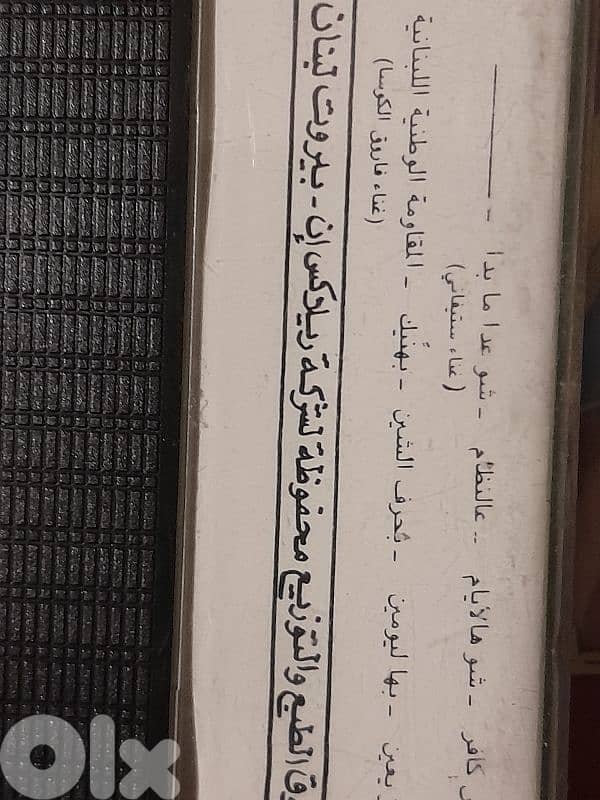 كافر - شو هالأيام - عالنظام - شو عدا ما بدا -
(غناء ستيفاني)
يعين - بها ليومين - بحرف الشين - بهنيك - المقاومة الوطنية اللبنانية
(غناء فاروق الكوسا)
الطبع والتوزيع محفوظة لشركة ريلاكس إن - بيروت لبنان
olx